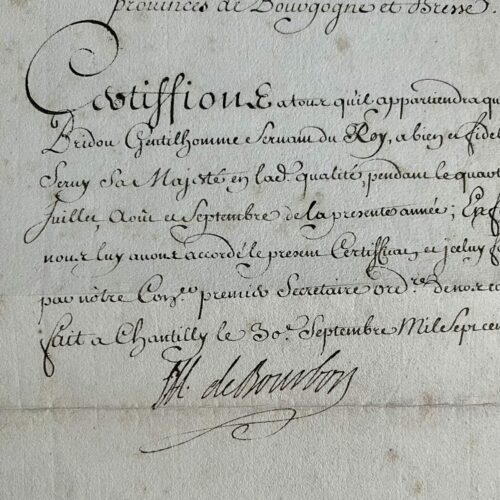 provinces de Bourgogne et Bresse.
Certiffions a tous qu'il appartiendra qu
Bridou Gentilhomme Servant du Roy, a bien et fidel
Servy Sa Majesté en lad. qualité, pendant le quart
Juillet, Aoüt et Septembre de la presente année; En f
nous luy avons accordé le present Certifficat, et iceluy f
par nôtre Con.er premier Secretaire ord.re de nos co
fait a Chantilly le 30.e Septembre Mil Sept cen
de Bourbon